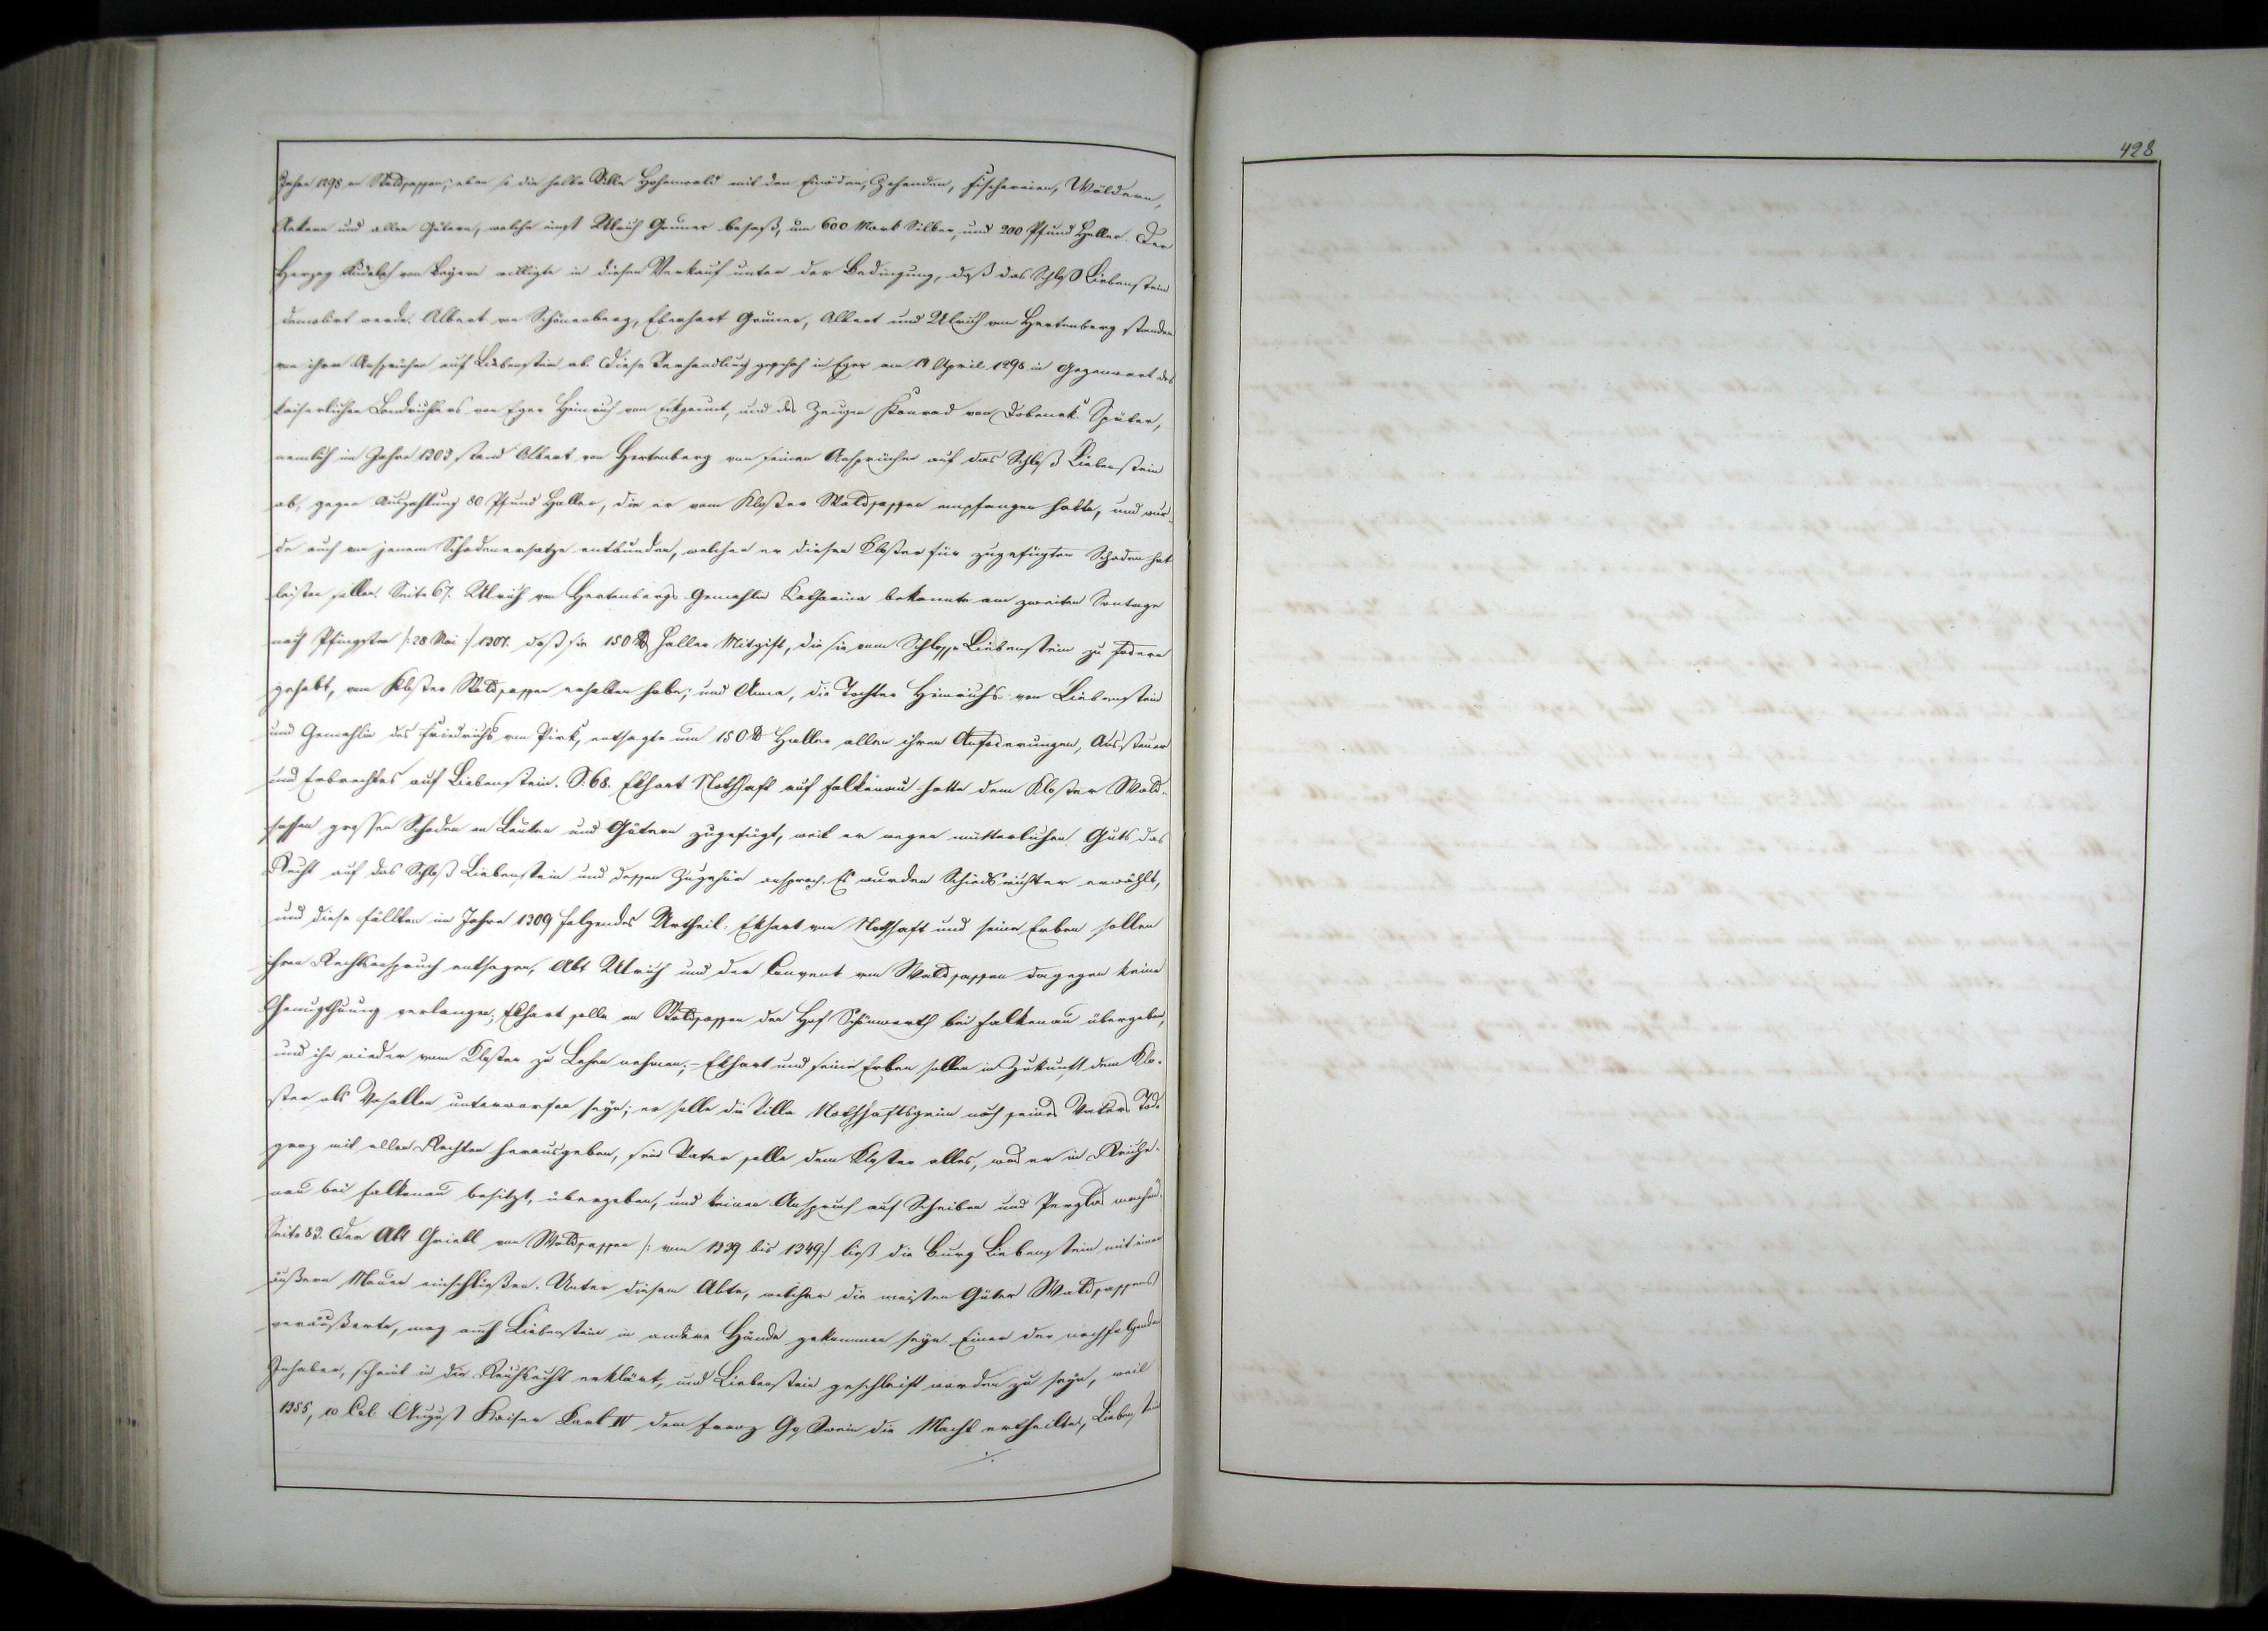 428
Jahre 1298 an Waldsassen; eben so die halbe Villa Hohenwald mit den Einöden, Zehenden, Fischereien, Wäldern,
Äckern und allen Gütern, welche einst Ulrich Gruner besaß, um 600 Mark Silber, und 200 Pfund Haller. Der
Herzog Rudolph von Bayern willigte in diesen Verkauf unter der Bedingung, daß das Schloß Liebenstein
demolirt werde. Albert von Schönenberg, Eberhart Gruner, Albert und Ulrich von Hertenberg standen
von ihren Ansprüchen auf Liebenstein ab. Diese Verhandlung geschah in Eger am April 1298 in Gegenwart des
kaiserlichen Landrichters von Eger Heinrich von, und des Zeugen Konrad von Dobenek. Später,
nemlich im Jahre 1303 stand Albert von Hertenberg von seinen Ansprüchen auf das Schloß Liebenstein
ab, gegen Auszahlung 80 Pfund Haller, die er vom Kloster Waldsassen empfangen hatte, und wur-
de auch von jenem Schadenersatze entbunden, welchen er diesen Kloster für zugefügten Schaden hat
leisten sollen. Seite 67. Ulrich von Hertenbergs Gemahlin Katharina bekannte am zweiten Sontage
nach Pfingsten /: 28 Mai :/ 1307. daß sie 150 ℔ Haller Mitgift, die sie vom Schlosse Liebenstein zu fodern
gehabt, vom Kloster Waldsassen erhalten habe; und Anna, die Tochter Heinrichs von Liebenstein
und Gemahlin des Friedrichs von Pirk, entsagte um 150 ℔ Haller allen ihren Anfoderungen, Aussteuer
und Erbrechtes auf Liebenstein. S: 68. Ekhart Nothhaft auf Falkenau hatte dem Kloster Wald-
sassen grossen Schaden an Leuten und Gütern zugefügt, weil er wegen mütterlichen Guts das
Recht auf das Schloß Liebenstein und dessen Zugehör ansprach. Es wurden Schiedsrichter erwählt,
und diese fällten im Jahre 1309 folgendes Urtheil: Ekhart von Nothhaft und seine Erben sollen
ihren Rechtsanspruch entsagen, Abt Ulrich und der Convent von Waldsassen dagegen keine
Genugthuung verlangen; Ekhart solle an Waldsassen den Hof Schönwerth bei Falkenau übergeben,
und ihn wieder vom Kloster zu Lehen nehmen; – Ekhart und seine Erben sollen in Zukunft dem Klo-
ster als Vasallen unterworfen seyn; er solle die Villa Nothhaftsgrün nach seines Vaters Tode
ganz mit allen Rechten herausgeben, sein Vater solle dem Kloster alles, was er in Reiche-
nau bei Falkenau besitzt, übergeben, und keinen Anspruch auf Scheiben und Perglas machen.
Seite 83. Der Abt Griebl von Waldsassen /: von 1339 bis 1349 :/ ließ die Burg Liebenstein mit einer
äußern Mauer einschließen. Unter diesem Abte, welcher die meisten Güter Waldsassens
veräußerte, mag auch Liebenstein in andere Hände gekommen seyn. Einer der nachfolgenden
Inhaber, scheint in die Reichsacht erklärt, und Liebenstein geschleift worden zu seyn, weil
1355, 10 Cal. August Kaiser Karl IV dem Franz die Macht ertheilte, Liebenstein
./.